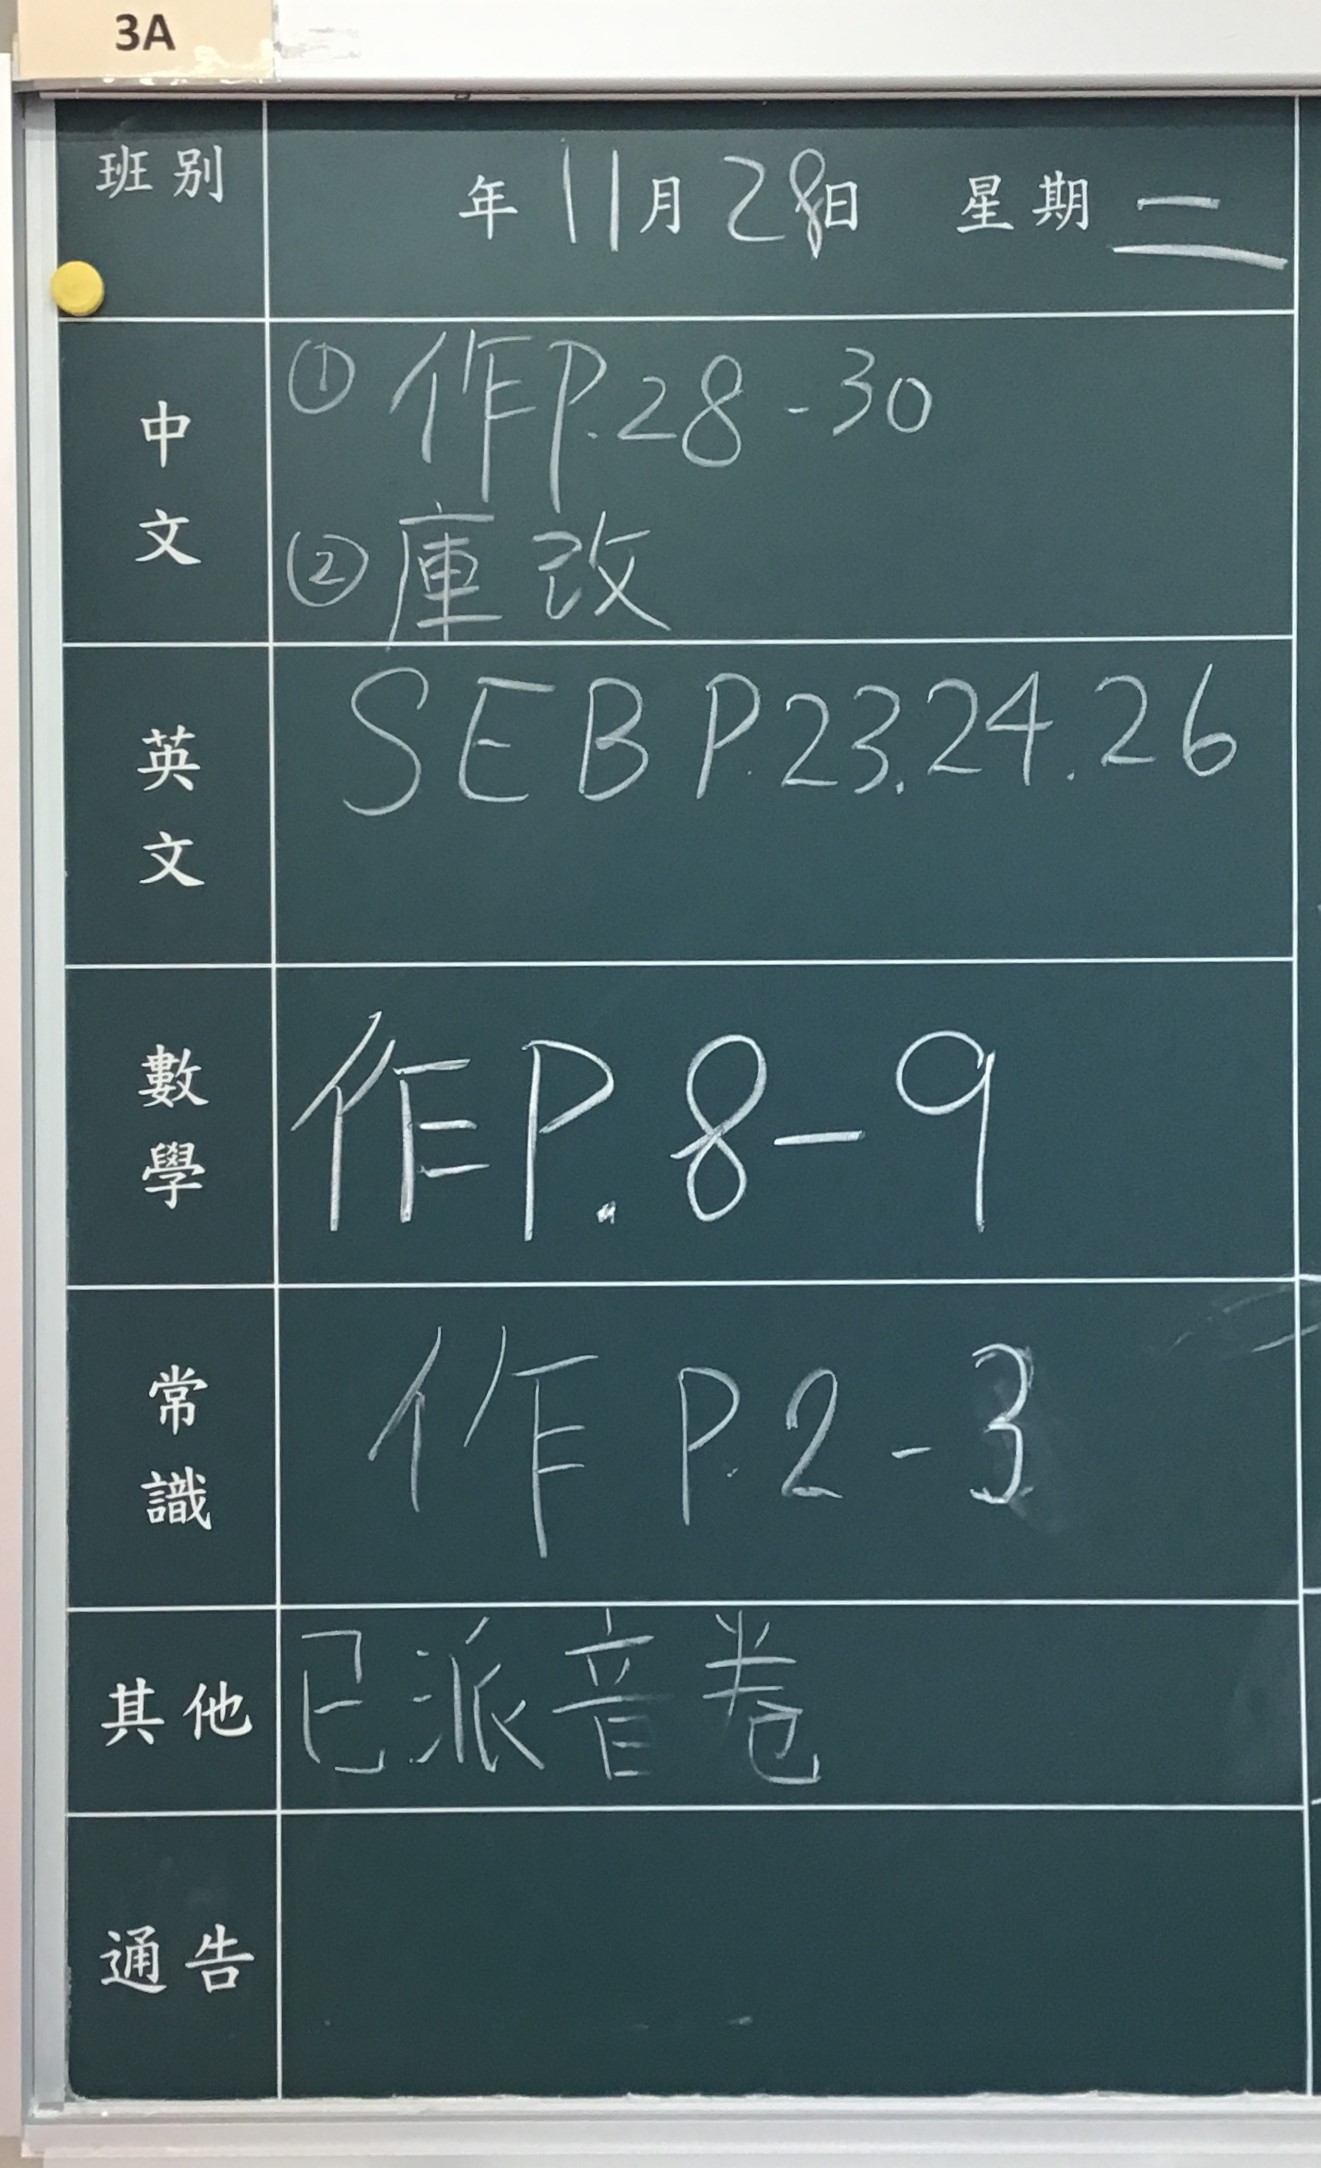 3A
班別 年 11月28日 星期二
中文
① 作P.28-30
② 庫改
英文
SEB P.23.24.26
數學
作P.8-9
常識
作 P.2-3
其他
已派音卷
通告